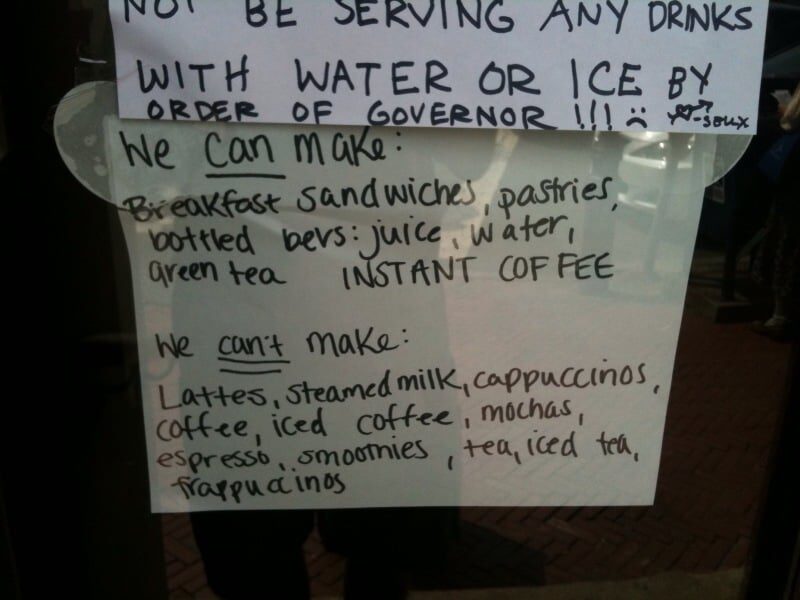 NOT BE SERVING ANY DRINKS
WITH WATER OR ICE BY
ORDER OF GOVERNOR !!! :(
We can make:
Breakfast sandwiches, pastries,
bottled bevs: juice, water,
green tea INSTANT COFFEE
We can't make:
Lattes, steamed milk, cappuccinos,
coffee, iced coffee, mochas,
espresso, smoothies, tea, iced tea,
frappuccinos